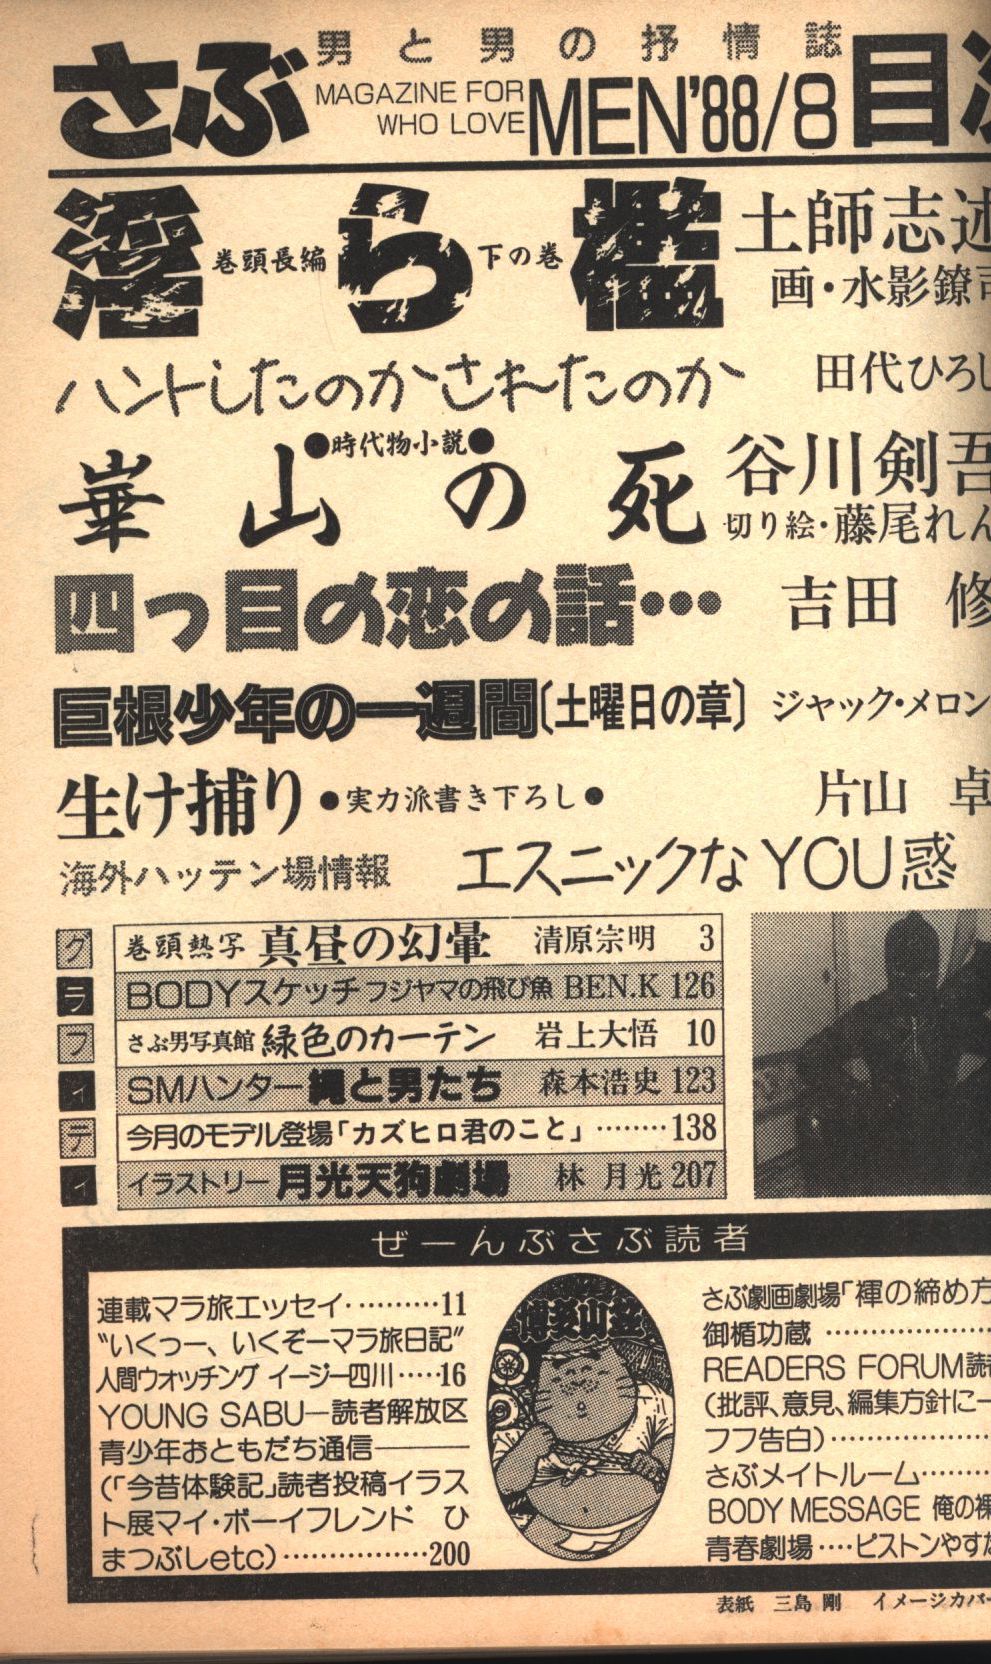 さぶ
男と男の抒情誌
MAGAZINE FOR
WHO LOVE
MEN'88/8
目次
淫ら檻
巻頭長編
下の巻
土師志述
画・水影鐐司
ハントしたのかされたのか
田代ひろし
崋山の死
●時代物小説●
谷川剣吾
切り絵・藤尾れん
四つ目の恋の話…
吉田 修
巨根少年の一週間〔土曜日の章〕
ジャック・メロン
生け捕り
●実力派書き下ろし●
片山 卓
海外ハッテン場情報
エスニックなYOU惑
グラフィティ
巻頭熱写 真昼の幻暈 清原宗明 3
BODYスケッチ フジヤマの飛び魚 BEN.K 126
さぶ男写真館 緑色のカーテン 岩上大悟 10
SMハンター 縄と男たち 森本浩史 123
今月のモデル登場「カズヒロ君のこと」………138
イラストリー 月光天狗劇場 林 月光 207
ぜーんぶさぶ読者
連載マラ旅エッセイ…………11
“いくっー、いくぞーマラ旅日記”
人間ウォッチング イージー四川……16
YOUNG SABU—読者解放区
青少年おともだち通信————
(「今昔体験記」読者投稿イラス
ト展マイ・ボーイフレンド ひ
まつぶしetc)………………200
博多山笠
さぶ劇画劇場「褌の締め方
御楯功蔵 …………………
READERS FORUM読者
(批評、意見、編集方針に一
フフ告白)…………………
さぶメイトルーム…………
BODY MESSAGE 俺の裸
青春劇場……ピストンやすだ
表紙 三島 剛 イメージカバー